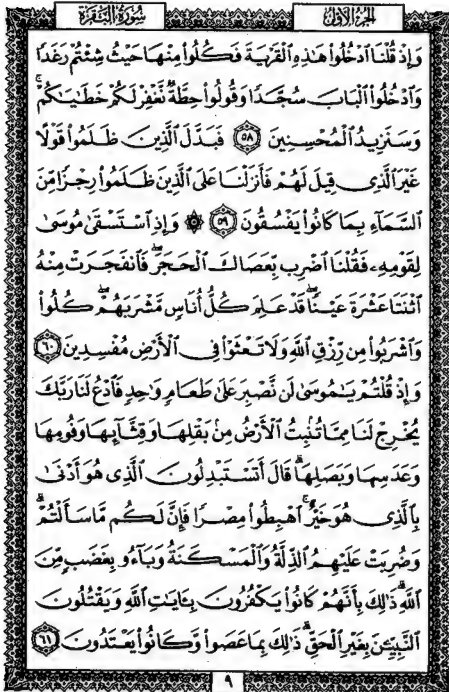 الجزء الأول
سورة البقرة
وَإِذْ قُلْنَا ٱدْخُلُوا۟ هَـٰذِهِ ٱلْقَرْيَةَ فَكُلُوا۟ مِنْهَا حَيْثُ شِئْتُمْ رَغَدًا
وَٱدْخُلُوا۟ ٱلْبَابَ سُجَّدًا وَقُولُوا۟ حِطَّةٌ نَّغْفِرْ لَكُمْ خَطَـٰيَـٰكُمْ ۚ
وَسَنَزِيدُ ٱلْمُحْسِنِينَ ٥٨ فَبَدَّلَ ٱلَّذِينَ ظَلَمُوا۟ قَوْلًا
غَيْرَ ٱلَّذِى قِيلَ لَهُمْ فَأَنزَلْنَا عَلَى ٱلَّذِينَ ظَلَمُوا۟ رِجْزًا مِّنَ
ٱلسَّمَآءِ بِمَا كَانُوا۟ يَفْسُقُونَ ٥٩ ۞ وَإِذِ ٱسْتَسْقَىٰ مُوسَىٰ
لِقَوْمِهِۦ فَقُلْنَا ٱضْرِب بِّعَصَاكَ ٱلْحَجَرَ ۖ فَٱنفَجَرَتْ مِنْهُ
ٱثْنَتَا عَشْرَةَ عَيْنًا ۖ قَدْ عَلِمَ كُلُّ أُنَاسٍ مَّشْرَبَهُمْ ۖ كُلُوا۟
وَٱشْرَبُوا۟ مِن رِّزْقِ ٱللَّهِ وَلَا تَعْثَوْا۟ فِى ٱلْأَرْضِ مُفْسِدِينَ ٦٠
وَإِذْ قُلْتُمْ يَـٰمُوسَىٰ لَن نَّصْبِرَ عَلَىٰ طَعَامٍ وَٰحِدٍ فَٱدْعُ لَنَا رَبَّكَ
يُخْرِجْ لَنَا مِمَّا تُنۢبِتُ ٱلْأَرْضُ مِنۢ بَقْلِهَا وَقِثَّآئِهَا وَفُومِهَا
وَعَدَسِهَا وَبَصَلِهَا ۖ قَالَ أَتَسْتَبْدِلُونَ ٱلَّذِى هُوَ أَدْنَىٰ
بِٱلَّذِى هُوَ خَيْرٌ ۚ ٱهْبِطُوا۟ مِصْرًا فَإِنَّ لَكُم مَّا سَأَلْتُمْ ۗ
وَضُرِبَتْ عَلَيْهِمُ ٱلذِّلَّةُ وَٱلْمَسْكَنَةُ وَبَآءُو بِغَضَبٍ مِّنَ
ٱللَّهِ ۗ ذَٰلِكَ بِأَنَّهُمْ كَانُوا۟ يَكْفُرُونَ بِـَٔايَـٰتِ ٱللَّهِ وَيَقْتُلُونَ
ٱلنَّبِيِّـۧنَ بِغَيْرِ ٱلْحَقِّ ۗ ذَٰلِكَ بِمَا عَصَوا۟ وَّكَانُوا۟ يَعْتَدُونَ ٦١
٩